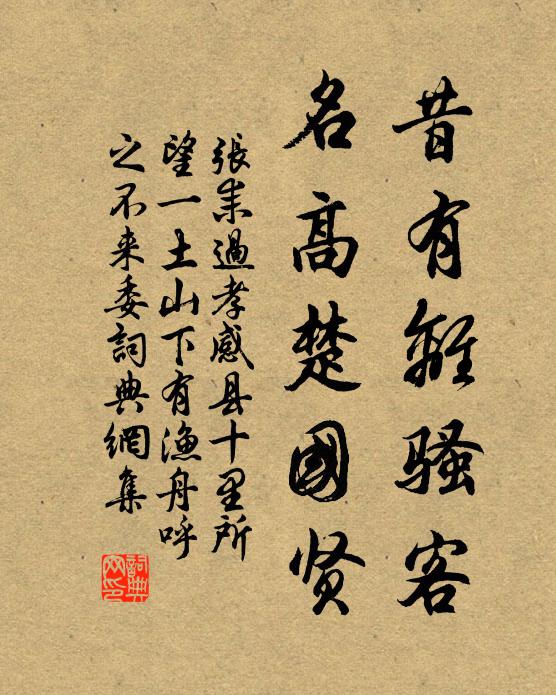 昔有離骚客
名高楚國贤
張耒過孝感县十里所
望一土山下有漁舟呼
之不来委詞典網集
詞典网印